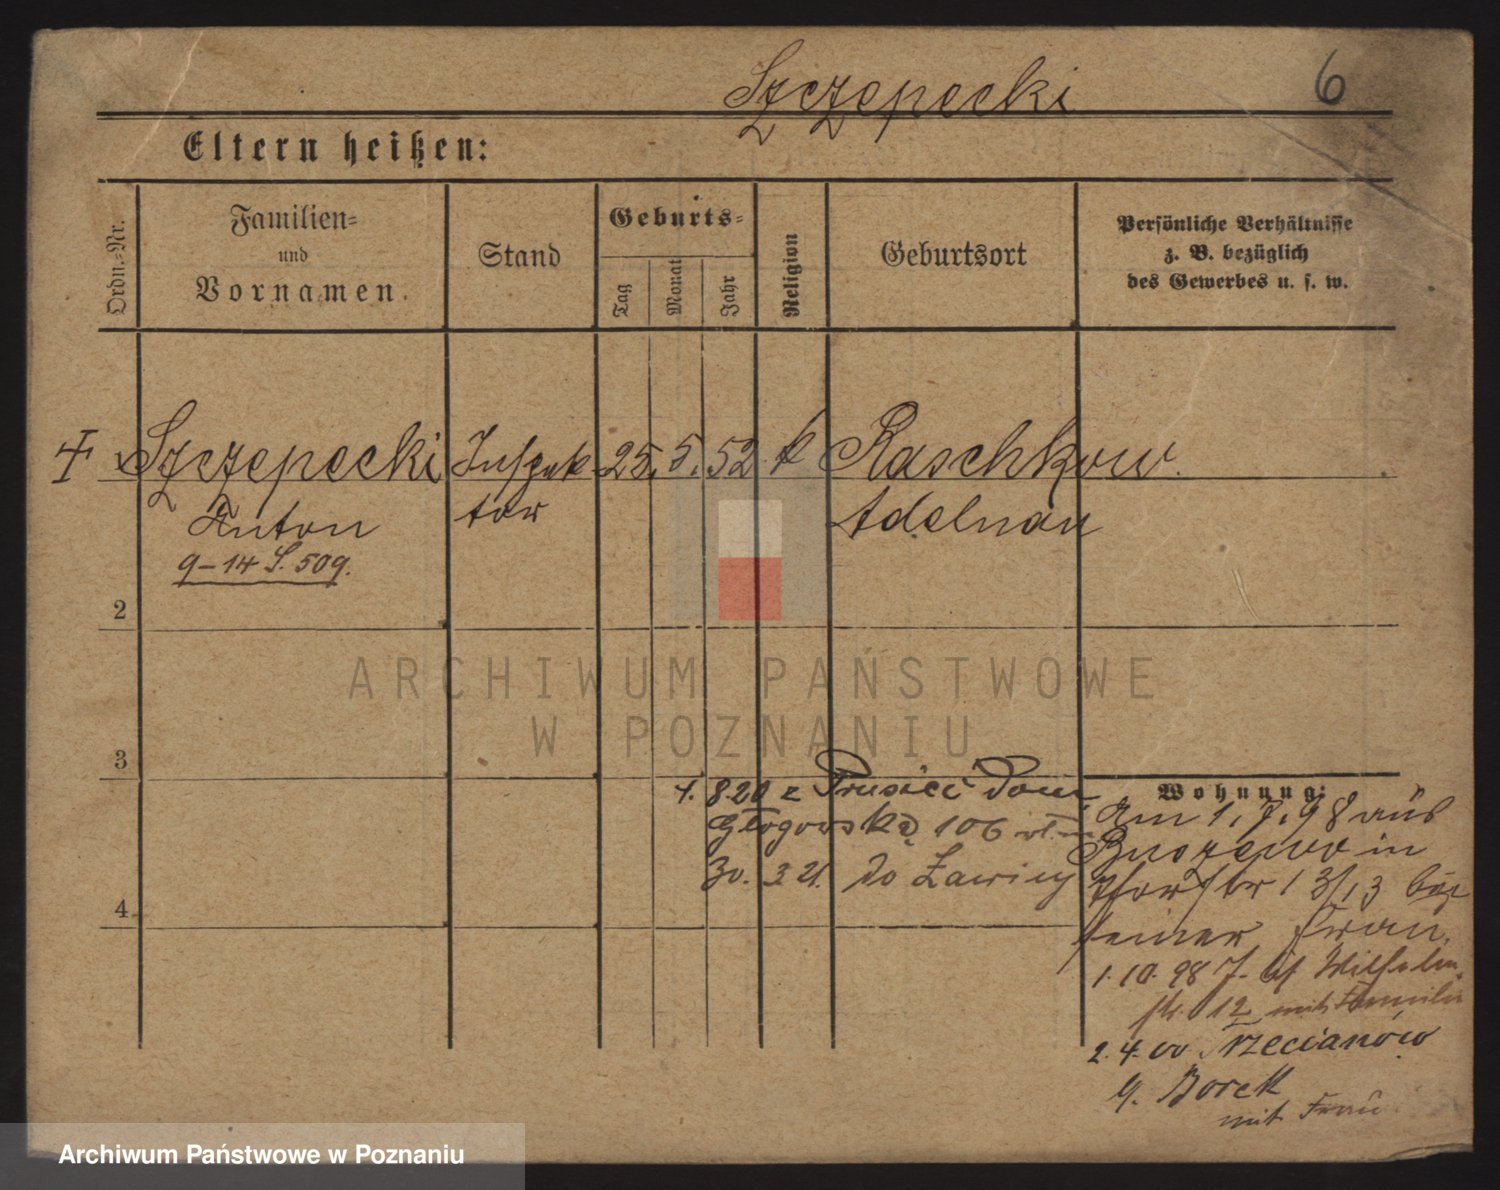 Szczepecki
6
Eltern heißen:
Ordn.-Nr.
Familien-
und
Vornamen.
Stand
Geburts-
Tag
Monat
Jahr
Religion
Geburtsort
Persönliche Verhältnisse
z. B. bezüglich
des Gewerbes u. s. w.
Szczepecki Inspek 25. 5. 52 k Raschkow
Anton tor Adelnau
9-14 S. 509.
2
ARCHIWUM PAŃSTWOWE
W POZNANIU
3
Wohnung:
1. 8.20 z Prusieć Dom
Głogowska 106
30. 3 21. do Ławicy
4
Am 1. 7. 98 aus
Buszewo in
13/13 bei
seiner Frau.
1. 10. 98 Wilhelm
str. 12 mit Familie
2. 4. 00 Trzecianów
b. Borek
mit Frau
Archiwum Państwowe w Poznaniu